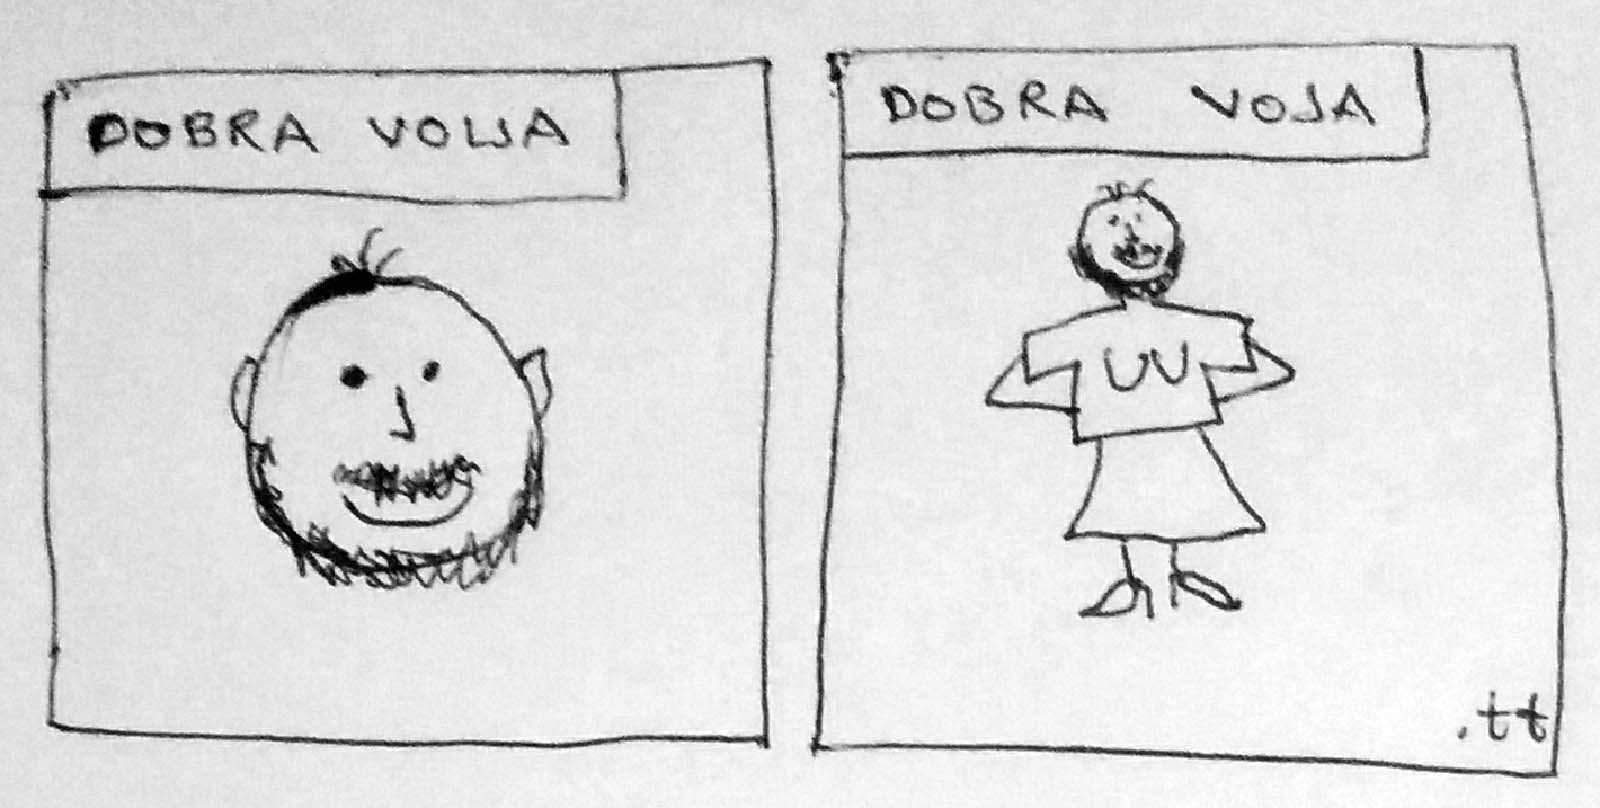 DOBRA VOLJA
DOBRA VOJA
.tt